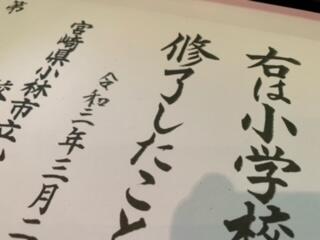 右は小学校
修了したこと
令和二年三月二
宮崎県小林市立
第